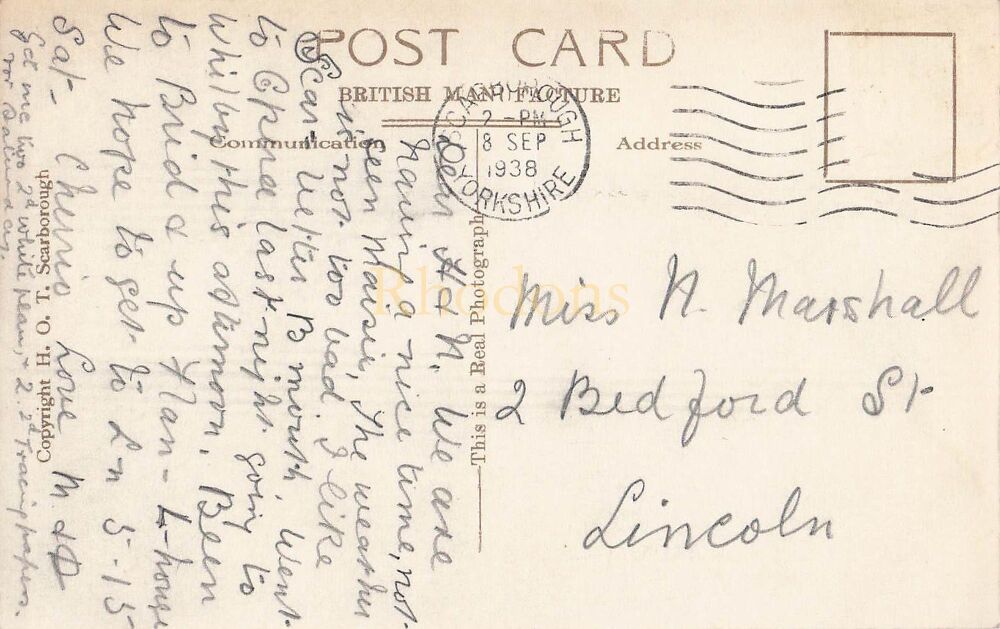 POST CARD
BRITISH MANUFACTURE
Communication
Address
SCARBOROUGH
2 - PM
8 SEP
1938
YORKSHIRE
Dear A & N. We are
having a nice time, not
seen Mausie, The weather
is not too bad I like
Scar better B'mouth, Went
to Opera last night going to
Whitby this afternoon. Been
to Brid & up Flam- L-house
We hope to get to L-n 5-15
Sat- Cheerio Love M. & D
Get me two 2d white & 2. 2d Tracing papers.
for Saturday.
Miss N. Marshall
2 Bedford St
Lincoln
This is a Real Photograph
Copyright H. O. T. Scarborough
Rhodons